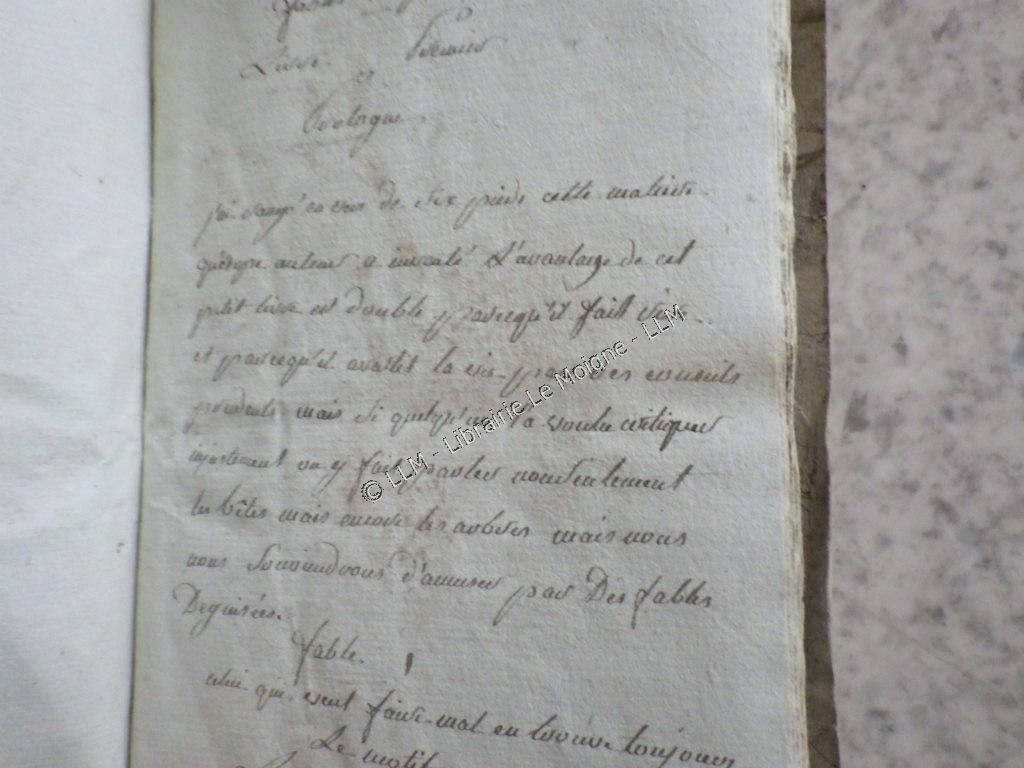 Livre Premier
Prologue.
j'ai rangé en vers de six pieds cette matiere
qu'esope auteur a inventé L'avantage de cet
petit livre est double parcequ'il fait rire
et parcequ'il avertit la vie par des conseils
prudents mais si quelqu'un a voulu critiquer
on y fait parler nonseulement
les bêtes mais encore les arbres mais nous
nous souviendrons d'amuser par Des fables
Deguisées.
fable. 1
celui qui veut faire mal en trouve toujours
Le motif
© LLM - Librairie Le Moigne - LLM